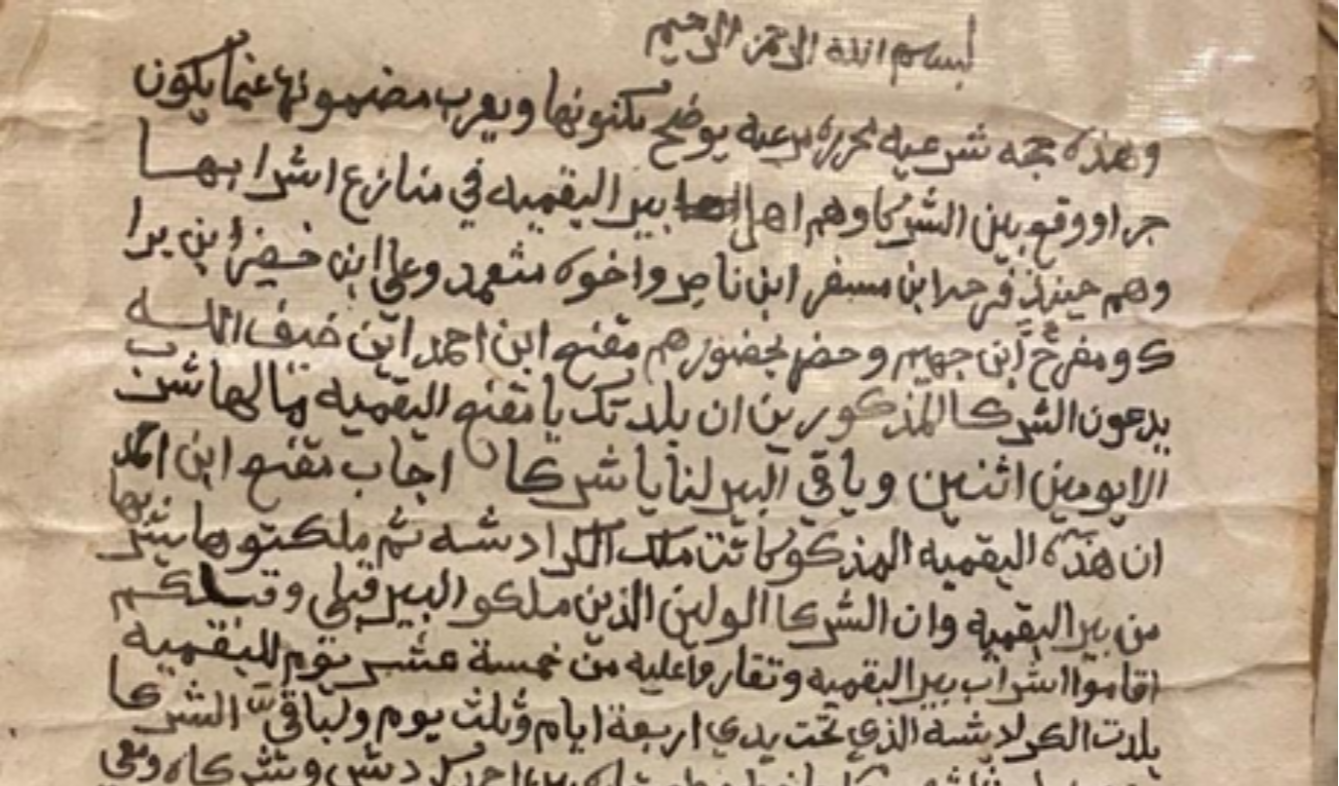 بسم الله الرحمن الرحيم
وهذه حجه شرعيه محرره مرعيه يوضح مكنونها ويعرب مضمونها عنما يكون
جرا ووقع بين الشركا وهم اهل بير اليقميه في منازع اشرابها
وهم حينذ فرحدا ابن مسفر ابن ناصر واخوه متعمد وعلي ابن خضرا ابن برا
ك ومفرح ابن جهيم وحضر بحضورهم مقنع ابن احمد ابن ضيف الله
يدعون الشركا المذكورين ان بلادتك يا مقنع اليقميه مالها شرب
الا يومين اثنين وباقي البير لنا يا شركا اجاب مقنع ابن احمد
ان هذه اليقميه المذكو كانت ملك الكرادشه ثم ملكتوها بشربها
من بير اليقميه وان الشركا الولين الذين ملكو البير قبلي وقبلكم
اقاموا اشراب بير اليقميه وتقاروا عليه من خمسة عشر يوم لليقميه
بلادت الكرادشه الذي تحت يدي اربعة ايام وثلث يوم ولباقي الشركا